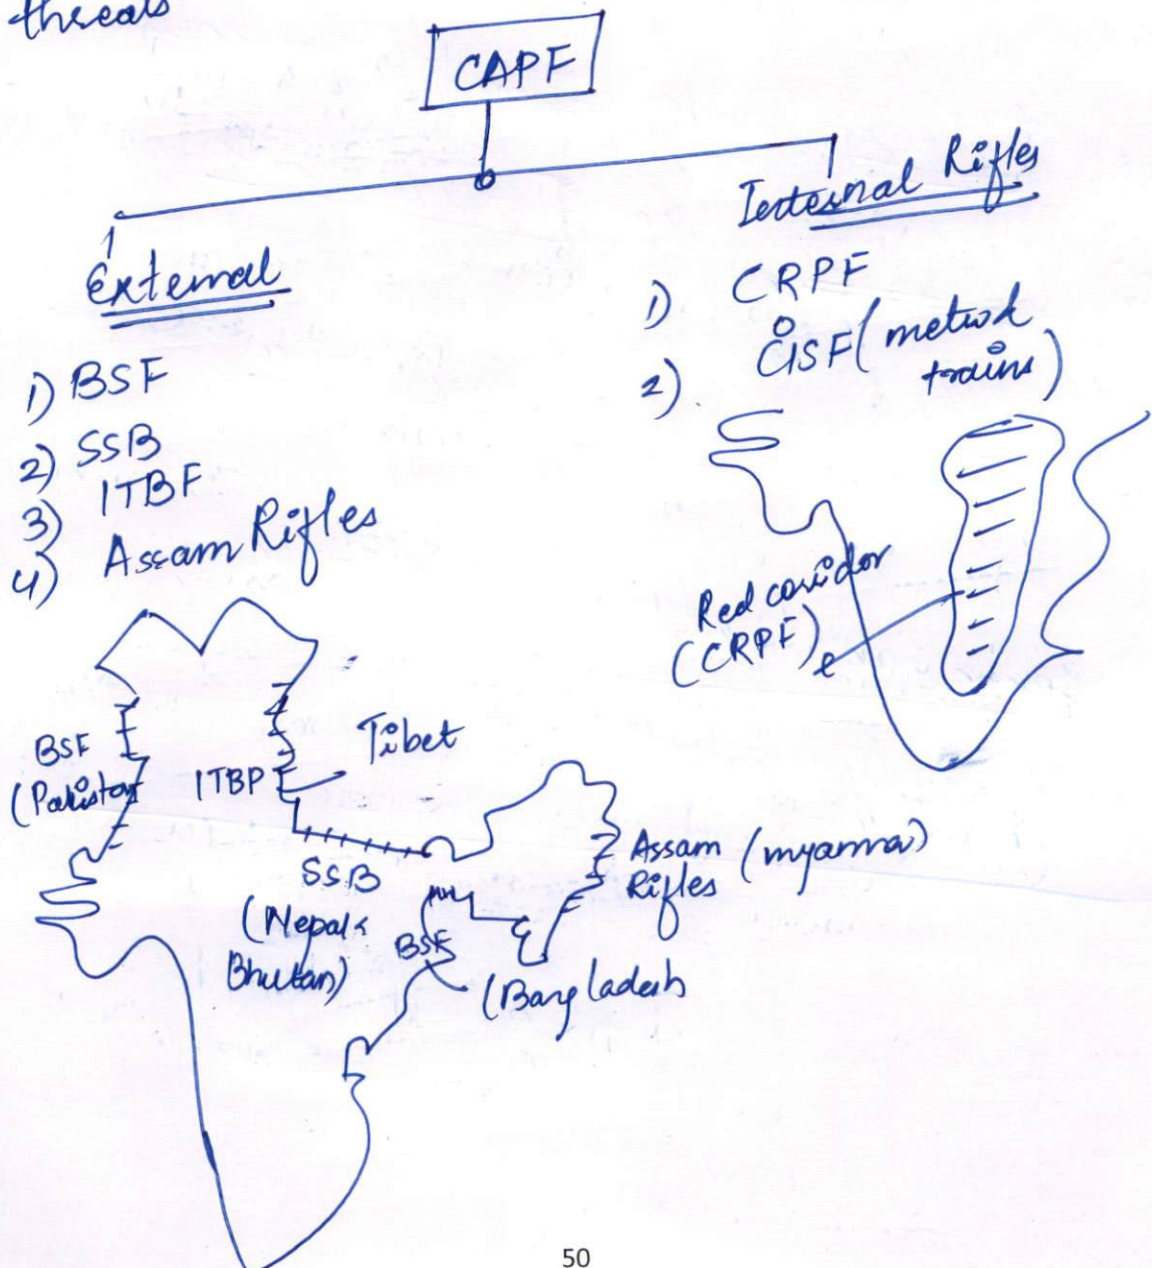 threats
CAPF
External
1) BSF
2) SSB
3) ITBF
4) Assam Rifles
Internal Rifles
1) CRPF
2) CISF (metro
trains)
Red corridor
(CRPF)
BSF
(Pakistan
ITBP
Tibet
SSB
(Nepal &
Bhutan)
BSF
(Bangladesh
Assam (myanma)
Rifles
50